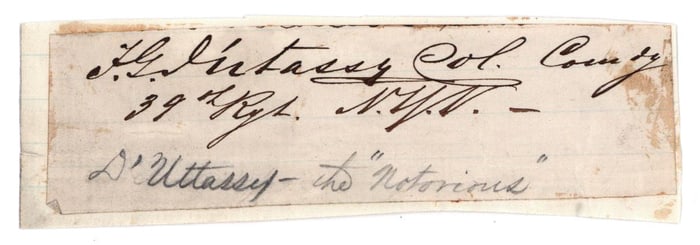 F.G. D'Utassy Col. Comdg
39th Rgt. N.Y.V. –
D'Uttassy – the "Notorious"